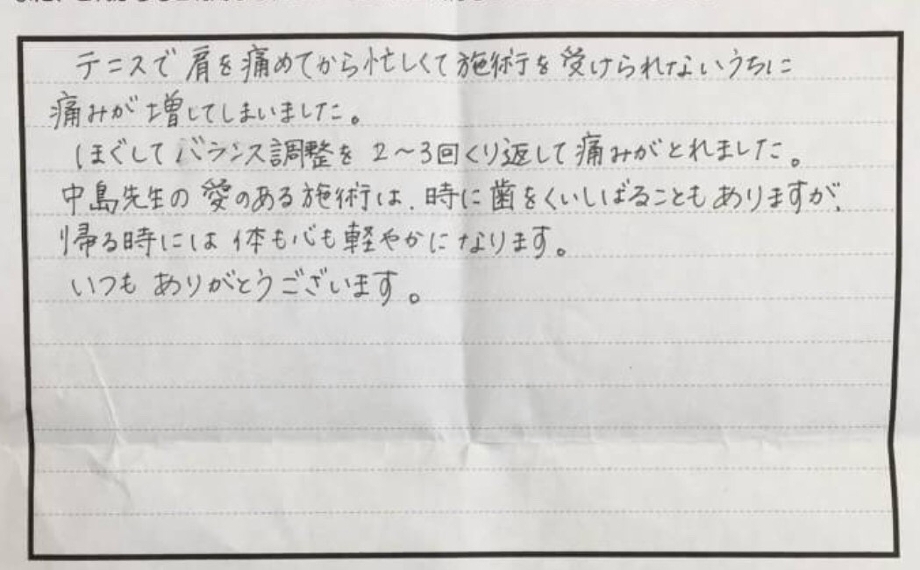 テニスで肩を痛めてから忙しくて施術を受けられないうちに
痛みが増してしまいました。
ほぐしてバランス調整を2〜3回くり返して痛みがとれました。
中島先生の愛のある施術は、時に歯をくいしばることもありますが、
帰る時には体も心も軽やかになります。
いつもありがとうございます。